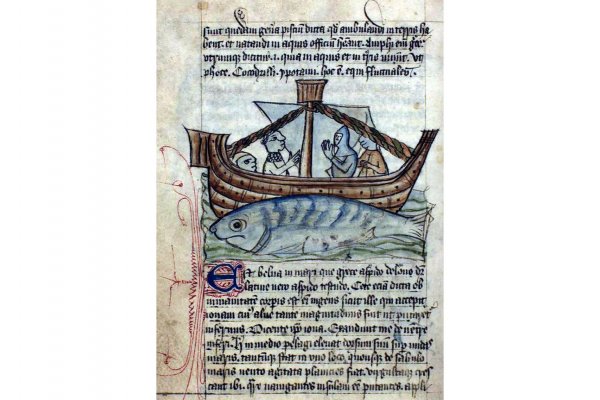 sunt quedam gen̄a pisciū dicta qd̄ ambulandi in terris ha
bent. et natandi in aquis officiū hēant. Amphi em̄ grece
utrumque dicitur .i. quia in aquis et in t̄ris uiuūt. ut
phoce. Cocodrilli. ypotami. hoc ē. equi fluctuales.
Est belua in mari que grece aspido delone dr̄
latine uero aspido testudo. Cete etiā dicta ob
inmanitatem corꝑis est em̄ ingens sicut ille qui excepit
ionam cui᷒ aluus tante magnitudinis fuit ut putaret᷑
infernus. Dicente ip̄o iona. Exaudiuit me de uentre
inferi. h̄ in medio pelagi eleuat dorsum suū sup̄ undas
maris. tantūque stat in uno loco. quousque de sabulo
maris uento agitata planicies fiat. uirgultaque cres
cant ibi. Qr̄e nauigantes insulam eē putantes. appli